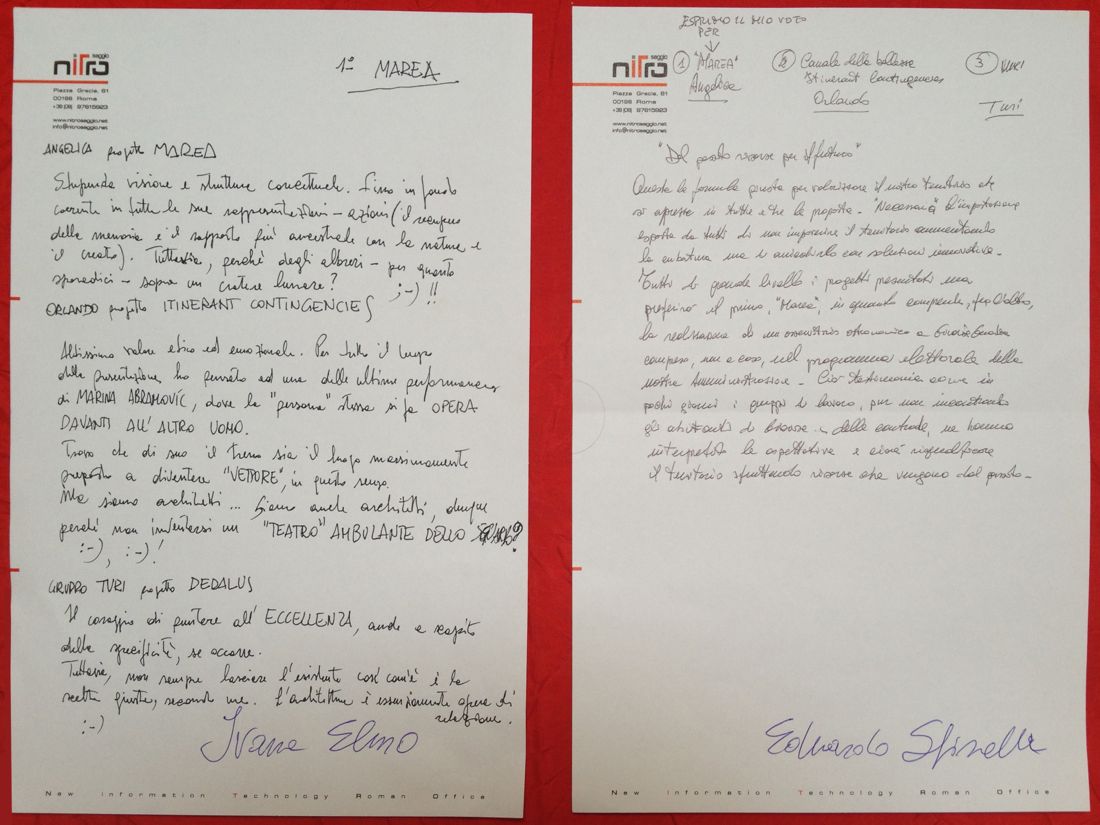 nITRo saggio
Piazza Grecia, 61
00196 Roma
+39 (06) 97615923
www.nitrosaggio.net
info@nitrosaggio.net
1° MAREA
ANGELICA progetto MAREA
Stupenda visione e struttura concettuale. Fino in fondo
coerente in tutte le sue rappresentazioni - azioni (il recupero
della memoria e il rapporto più ancestrale con la natura e
il creato). Tuttavia, perché degli alberi - per quanto
sporadici - sopra un cratere lunare? ;-) !!
ORLANDO progetto ITINERANT CONTINGENCIES
Altissimo valore etico ed emozionale. Per tutto il tempo
della presentazione ho pensato ad una delle ultime performances
di MARINA ABRAMOVIC, dove la "persona" stessa si fa OPERA
DAVANTI ALL'ALTRO UOMO.
Trovo che di suo il treno sia il luogo massimamente
preposto a diventare "VETTORE", in questo senso.
Ma siamo architetti... Siamo anche architetti, dunque
perché non inventarsi un "TEATRO" AMBULANTE DELLO
:-), :-)!
GRUPPO TURI progetto DEDALUS
Il coraggio di puntare all'ECCELLENZA, anche a scapito
della specificità, se occorre.
Tuttavia, non sempre lasciare l'esistente così com'è è la
scelta giusta, secondo me. L'architettura è essenzialmente opera di
relazione.
:-)
Ivana Elmo
New Information Technology Roman Office
ESPRIMO IL MIO VOTO
PER
nITRo saggio
① "MAREA"
Angelica
② Canale delle bellezze
Itinerant Contingencies
Orlando
③
Turi
Piazza Grecia, 61
00196 Roma
+39 (06) 97615923
www.nitrosaggio.net
info@nitrosaggio.net
"Dal passato risorse per il futuro"
Questa la formula giusta per valorizzare il nostro territorio che
si apprezza in tutte e tre le proposte. "Necessaria" l'impostazione
esposta da tutti di non impoverire il territorio aumentando
la cubatura ma di arricchirlo con soluzioni innovative.
Tutti di grande livello i progetti presentati ma
preferisco il primo, "Marea", in quanto comprende, fra l'altro,
la realizzazione di un osservatorio astronomico a
compreso, non a caso, nel programma elettorale della
nostra Amministrazione. Ciò testimonia come in
pochi giorni i gruppi di lavoro, pur non incontrando
gli abitanti di e delle contrade, ne hanno
interpretato le aspettative e cioè riqualificare
il territorio sfruttando risorse che vengono dal passato.
Edoardo
New Information Technology Roman Office